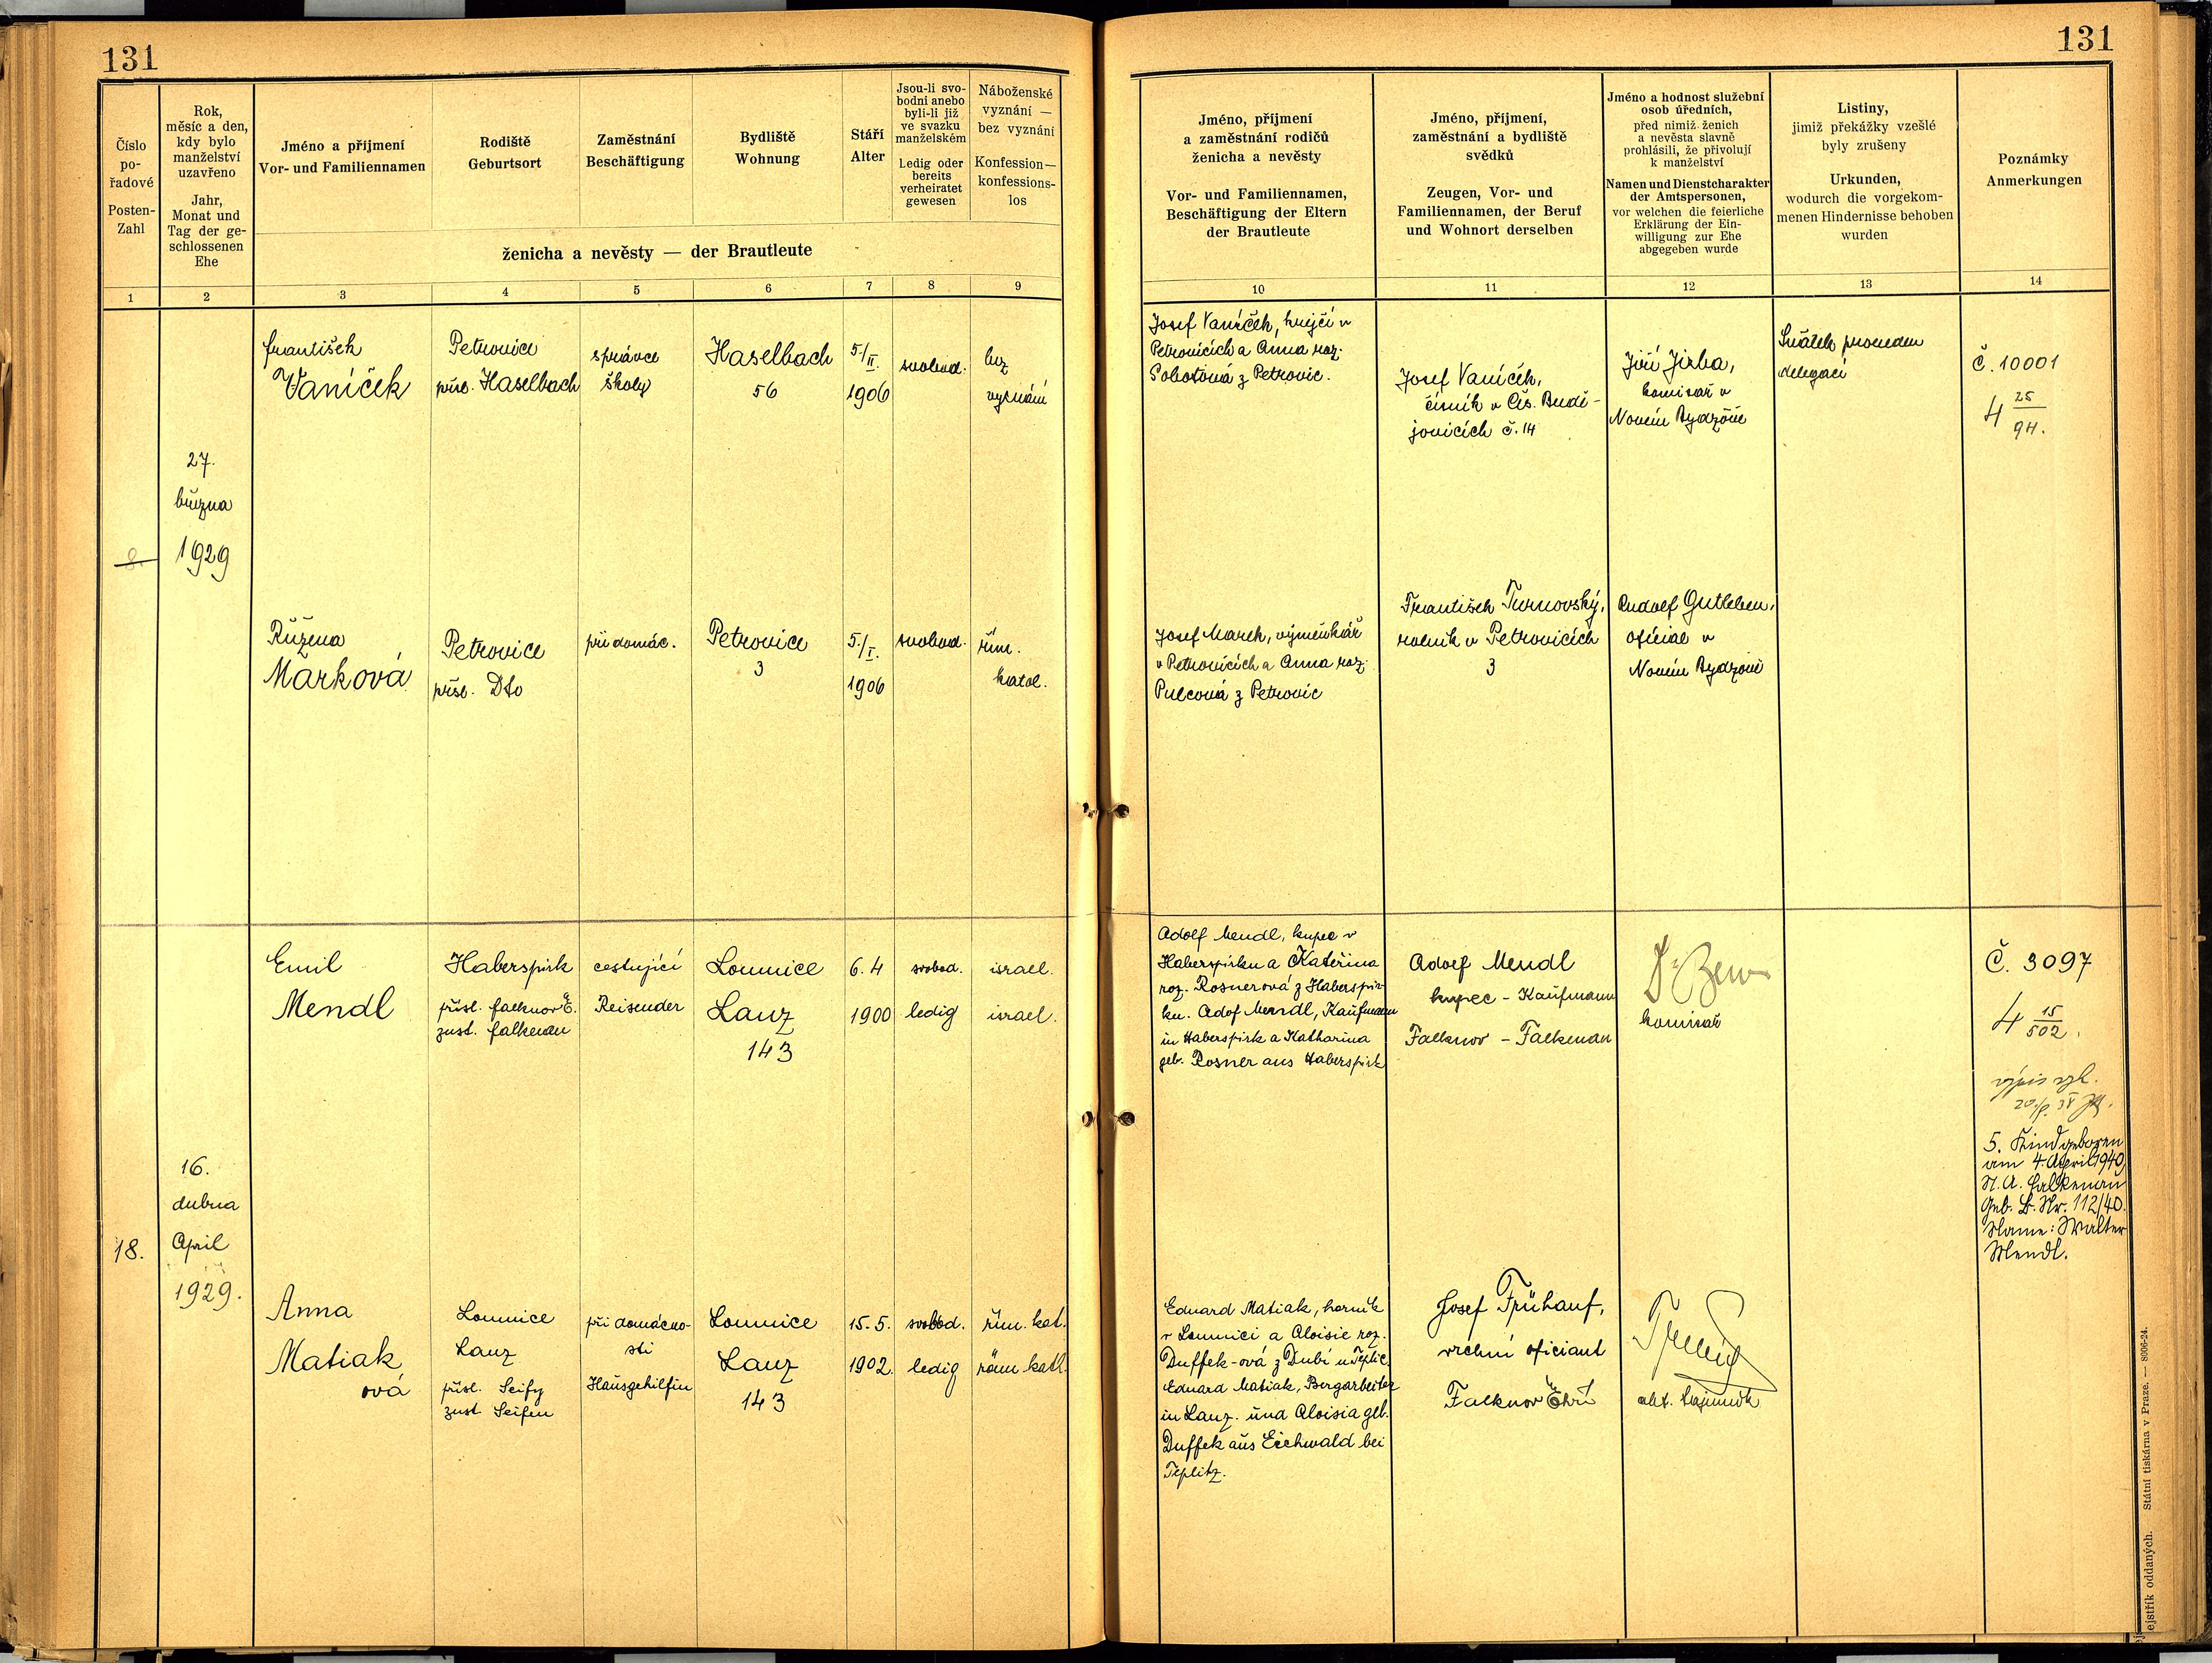 131
131
Číslo
po-
řadové
Posten-
Zahl
Rok,
měsíc a den,
kdy bylo
manželství
uzavřeno
Jahr,
Monat und
Tag der ge-
schlossenen
Ehe
Jméno a příjmení
Vor- und Familiennamen
Rodiště
Geburtsort
Zaměstnání
Beschäftigung
Bydliště
Wohnung
Stáří
Alter
Jsou-li svo-
bodni anebo
byli-li již
ve svazku
manželském
Ledig oder
bereits
verheiratet
gewesen
Náboženské
vyznání —
bez vyznání
Konfession—
konfessions-
los
ženicha a nevěsty — der Brautleute
Jméno, příjmení
a zaměstnání rodičů
ženicha a nevěsty
Vor- und Familiennamen,
Beschäftigung der Eltern
der Brautleute
Jméno, příjmení,
zaměstnání a bydliště
svědků
Zeugen, Vor- und
Familiennamen, der Beruf
und Wohnort derselben
Jméno a hodnost služební
osob úředních,
před nimiž ženich
a nevěsta slavně
prohlásili, že přivolují
k manželství
Namen und Dienstcharakter
der Amtspersonen,
vor welchen die feierliche
Erklärung der Ein-
willigung zur Ehe
abgegeben wurde
Listiny,
jimiž překážky vzešlé
byly zrušeny
Urkunden,
wodurch die vorgekom-
menen Hindernisse behoben
wurden
Poznámky
Anmerkungen
1 2 3 4 5 6 7 8 9 10 11 12 13 14
8.
27.
března
1929
František
Vaníček
Petrovice
přísl. Haselbach
správce
školy
Haselbach
56
5./II.
1906
svobod.
bez
vyznání
Josef Vaníček, krejčí v
Petrovicích a Anna roz.
Sobotová z Petrovic.
Josef Vaníček,
číšník v Čes. Budě-
jovicích č. 14
Jiří Jirba,
komisař v
Novém Bydžově
Sňatek proveden
delegací
č. 10001
4 25/94.
Růžena
Marková
Petrovice
přísl. Dto
při domác.
Petrovice
3
5./I.
1906
svobod.
řím.
katol.
Josef Marek, výměnkář
v Petrovicích a Anna roz.
Pulcová z Petrovic
František Turnovský,
rolník v Petrovicích
3
Rudolf Gutleben,
oficial v
Novém Bydžově
18.
16.
dubna
April
1929.
Emil
Mendl
Haberspirk
přísl. Falknov n. O.
zust. Falkenau
cestující
Reisender
Lomnice
Lanz
143
6. 4
1900
svobod.
ledig
israel.
israel.
Adolf Mendl, kupec v
Haberspirku a Kateřina
roz. Rosnerová z Haberspir-
ku. Adof Mendl, Kaufmann
in Haberspirk a Katharina
geb. Rosner aus Haberspirk
Adolf Mendl
kupec - Kaufmann
Falknov - Falkenau
komisař
Č. 3097
4 15/502.
výpis
5. Kind geboren
am 4. April 1940,
St. A. Falkenau
Geb. B. Nr. 112/40.
Name: Walter
Mendl.
Anna
Matiak
ová
Lomnice
Lanz
přísl. Seify
zust Seifen
při domácno-
sti
Hausgehilfin
Lomnice
Lanz
143
15. 5.
1902.
svobod.
ledig
řím. kat.
röm. kath.
Eduard Matiak, horník
v Lomnici a Aloisie roz.
Duffek-ová z Dubí u Teplic.
Eduard Matiak, Bergarbeiter
in Lanz. und Aloisia geb.
Duffek aus Eichwald bei
Teplitz.
Josef Frühauf,
vrchní oficiant
Falknov n. Ohří
akt. tajemník
ejstřík oddaných. Státní tiskárna v Praze. — 8006-24.